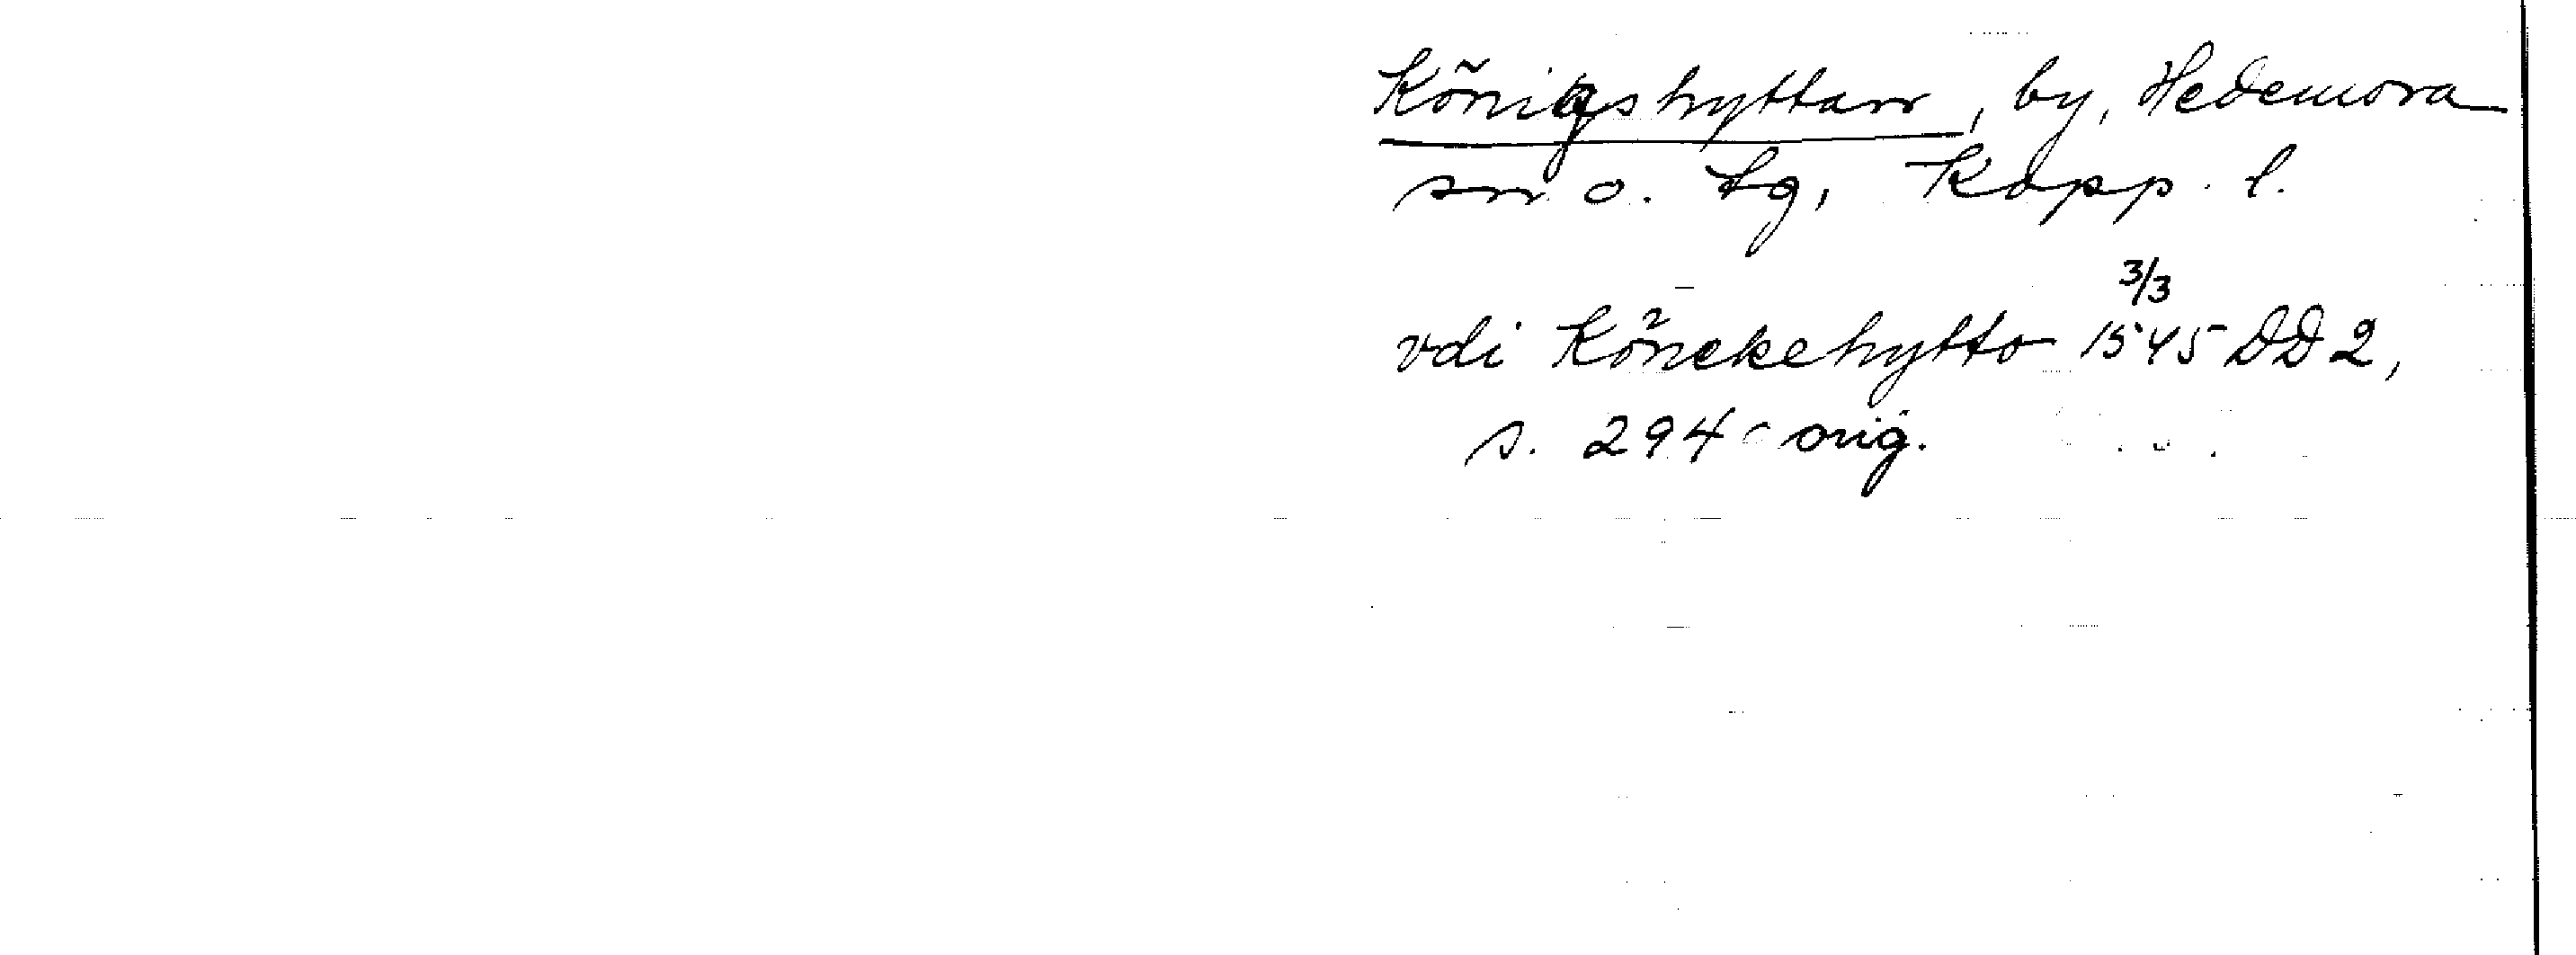 Königshyttan, by, Hedemora
sn o. tg, Kopp. l.
3/3
vdi Könekehytto 1545 DD 2,
s. 294 orig.